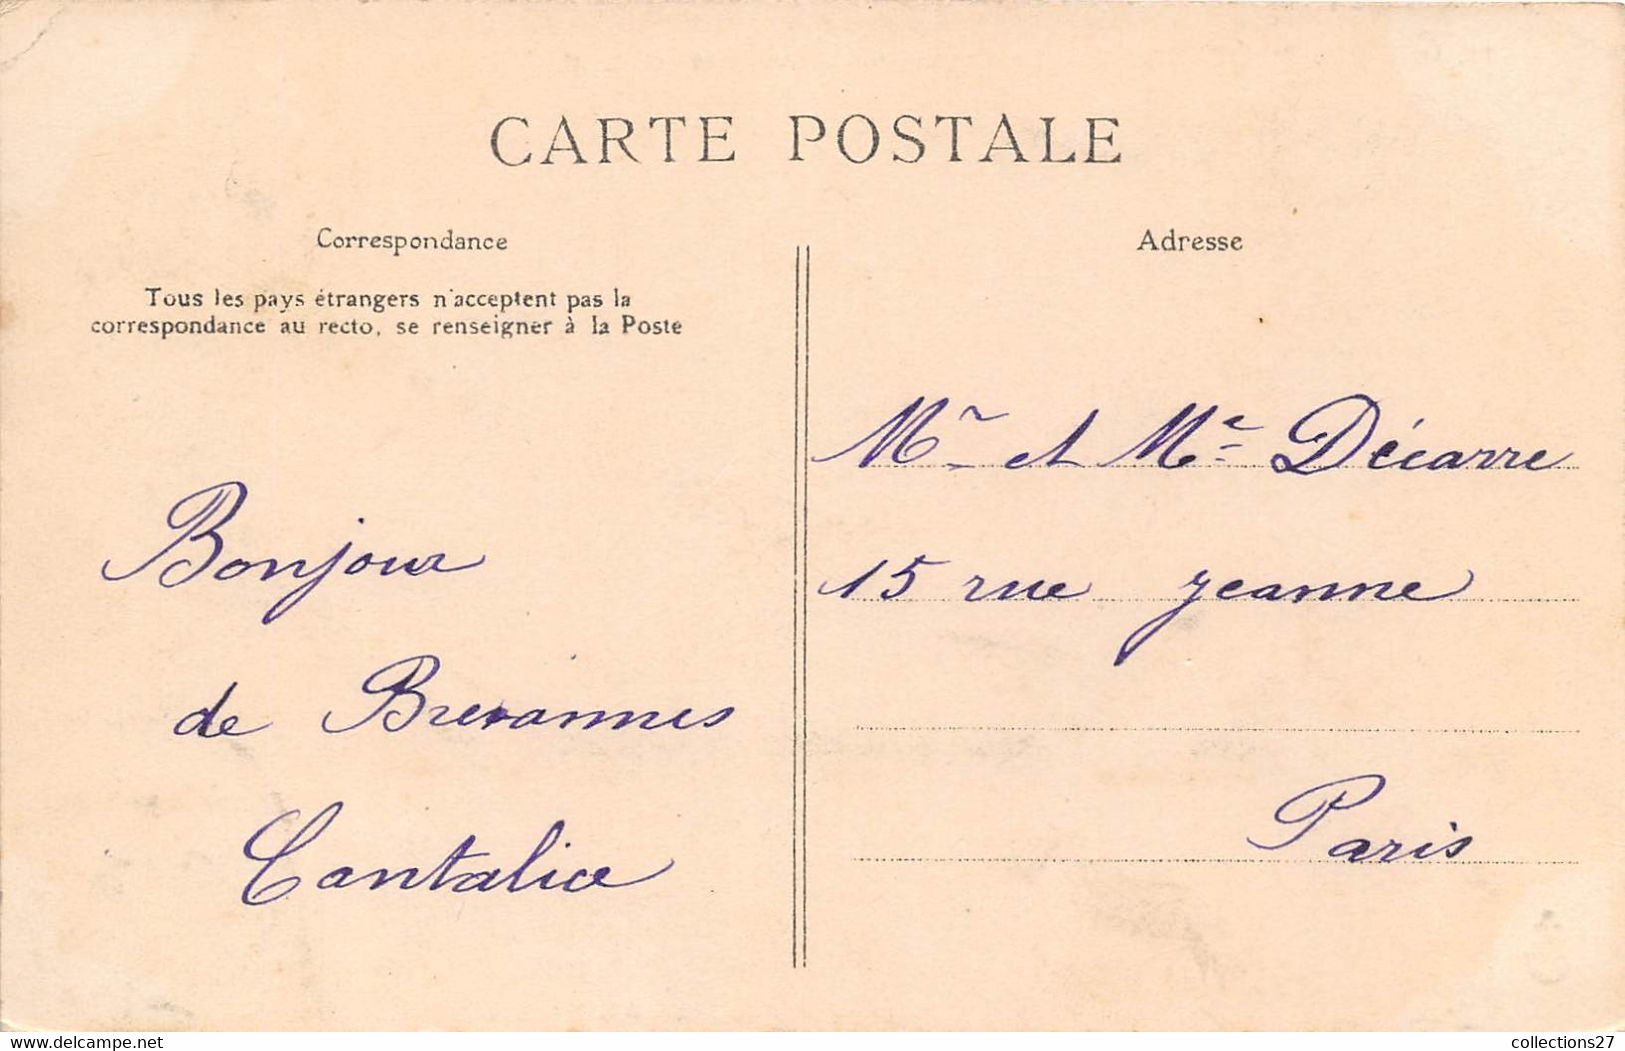 CARTE POSTALE
Correspondance
Tous les pays étrangers n'acceptent pas la
correspondance au recto, se renseigner à la Poste
Bonjour
de Brevannes
Cantalice
Adresse
Mr et Me Décarre
15 rue jeanne
Paris
collections27